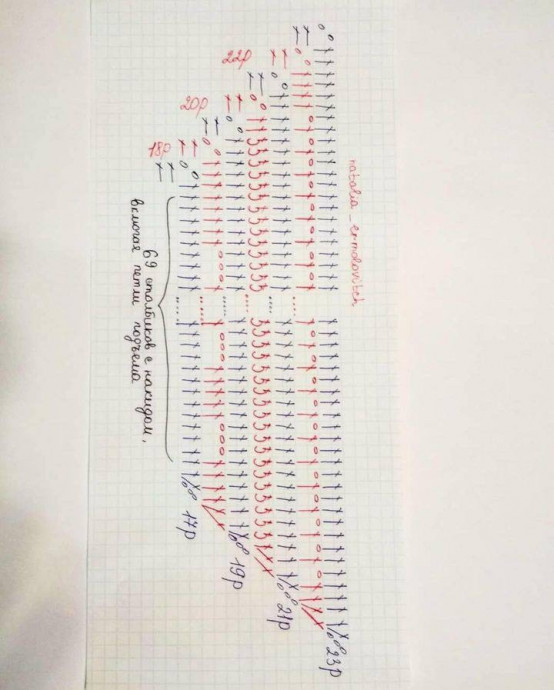 natalia_ermolovitch
22р
20р
18р
23р
21р
19р
17р
69 столбиков с накидом,
включая петли подъема